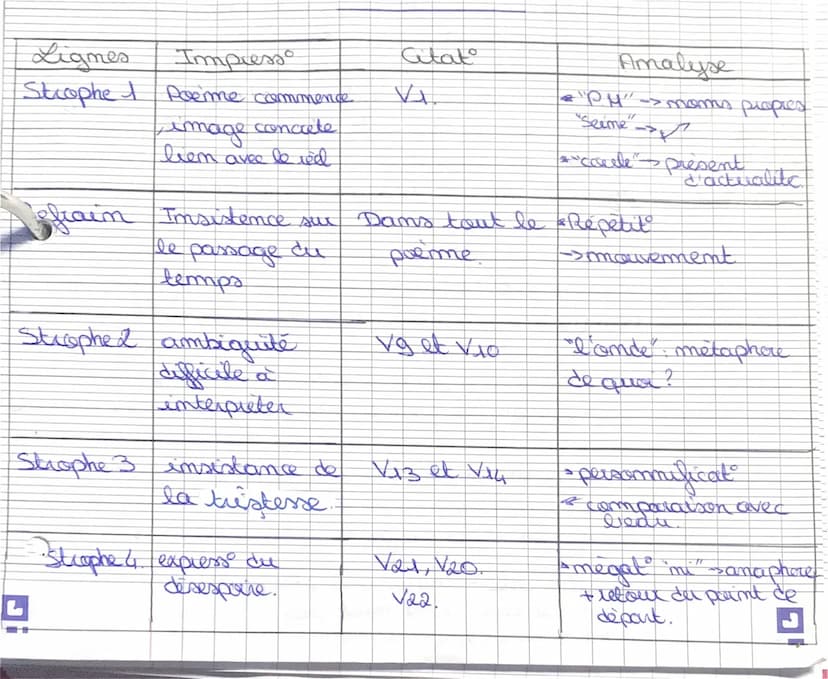 Lignes Impress° Citat° Analyse
Strophe 1 Poème commence V1. * "PM" -> noms propres
, image concrète "Seine" ->
lien avec le réel * "coule" -> présent
d'actualité.
Refrain Insistence sur Dans tout le * Répétit°
le passage du poème. -> mouvement
temps
Strophe 2 ambiguité V9 et V10 "l'onde" : métaphore
difficile à de quoi ?
interpréter
Strophe 3 insistance de V13 et V14 * personnificat°
la tristesse. * comparaison avec
l'eau.
Strophe 4. express° du V21, V20. * négat° "ni" -> anaphore
désespoire. V22. + retour du point de
départ.